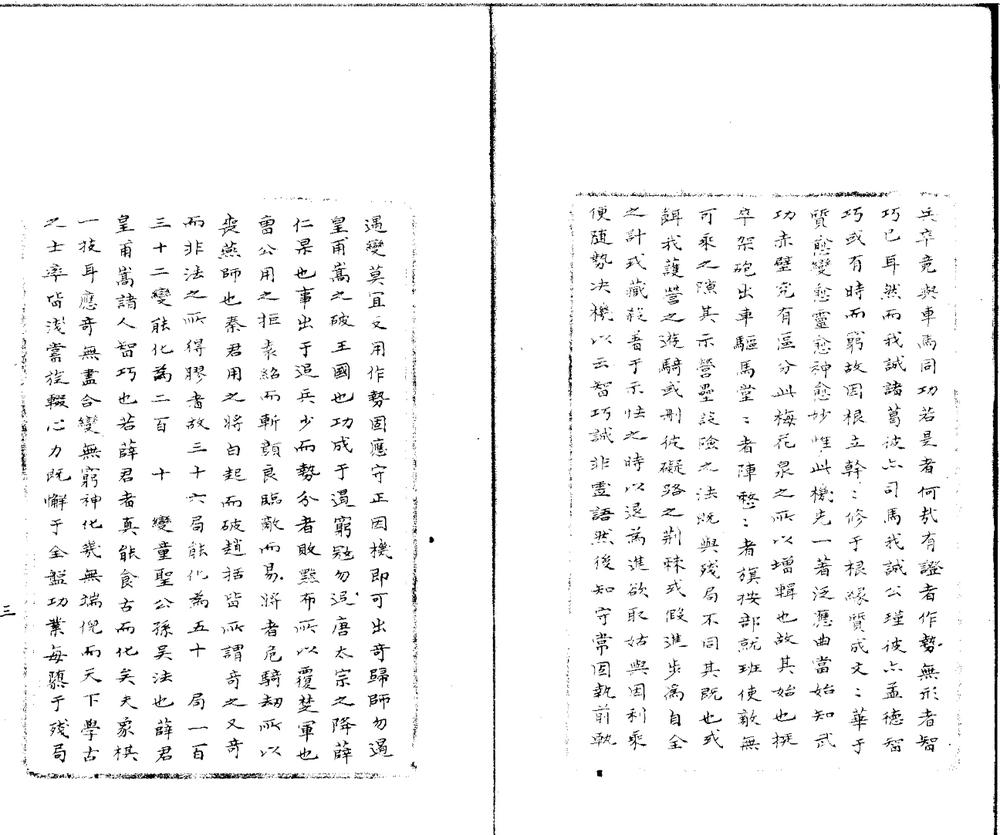 兵卒竟與車馬同功若是者何哉有證者作勢無形者智
巧已耳然而我誠諸葛彼亦司馬我誠公瑾彼亦孟德智
巧或有時而窮故因根立幹〻修于根緣質成文〻華于
質愈變愈靈愈神愈妙惟此機先一著泛應曲當始知武
功赤壁完有區分此梅花泉之所以增輯也故其始也挺
卒架砲出車驅馬堂〻者陣整〻者旗按部就班使敵無
可乘之隙其示營壘設險之法既與殘局不同其既也或
餌我護營之遊騎或刑彼礙路之荊棘或假進步為自全
之計或藏殺著于示怯之時以退為進欲取姑與因利乘
便隨勢決機以云智巧誠非虛語然後知守常固執前軌
遇變莫宜又用作勢固應守正因機即可出奇歸師勿遏
皇甫嵩之破王國也功成于遏窮寇勿追唐太宗之降薛
仁杲也事出于追兵少而勢分者敗黥布所以覆楚軍也
曹公用之拒袁紹而斬顏良臨敵而易將者危騎劫所以
喪燕師也秦君用之將白起而破趙括皆所謂奇之又奇
而非法之所得膠者故三十六局能化為五十 局一百
三十二變能化為二百 十 變童聖公孫吳法也薛君
皇甫嵩諸人智巧也若薛君者真能食古而化矣夫象棋
一技耳應奇無盡合變無窮神化幾無端倪而天下學古
之士率皆淺嘗旋輟心力既懈于全盤功業每隳于殘局
三